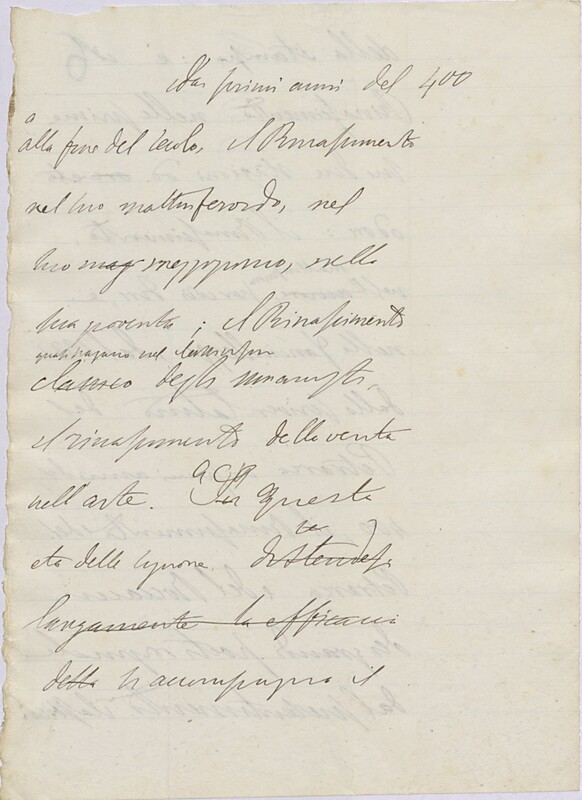 Dai primi anni del 400
a
alla fine del secolo, il Rinascimento
nel suo mattiniero, nel
suo mag mezzogiorno, nella
sua poventa; il Rinascimento
quasi pagano nel
classico degli umanisti,
il rinascimento della verità
nell'arte. In questa
età delle signorie. distendesi
largamente la efficaci
della s'accompagna il